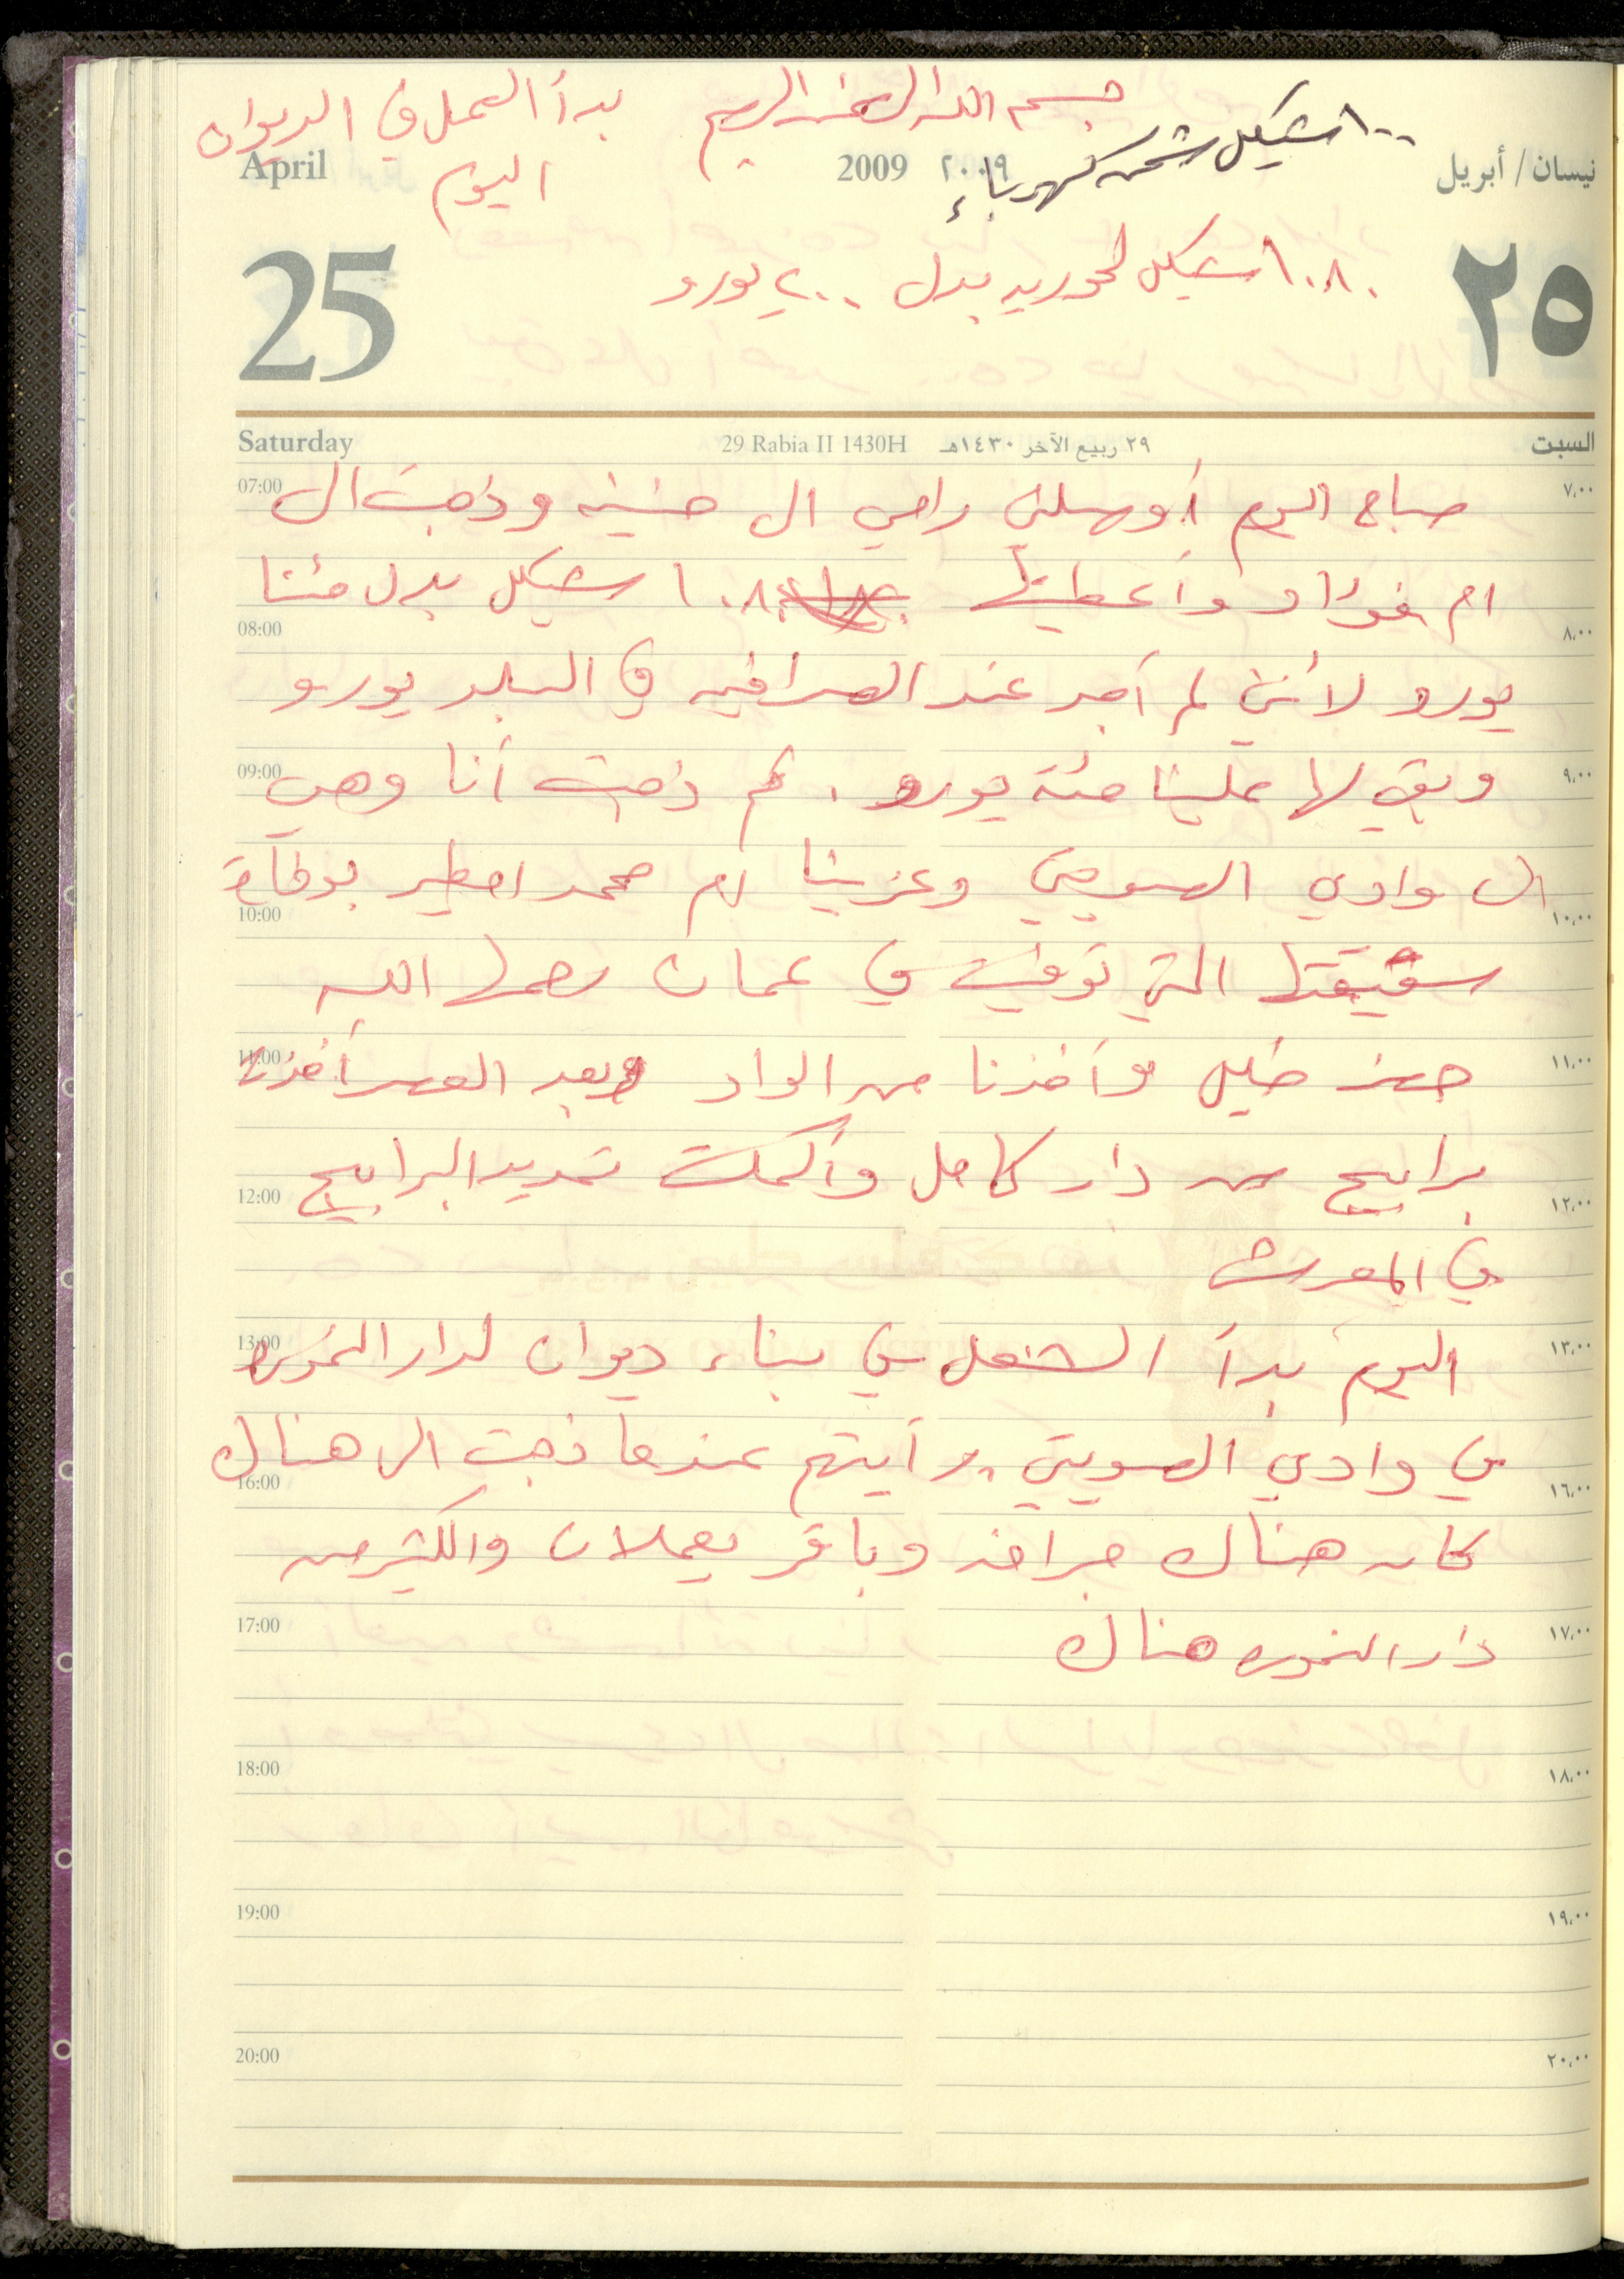 بسم الله الرحمن الرحيم
بدأ العمل في الديوان
اليوم
١٠٠ شيكل شحن كهرباء
نيسان / أبريل ٢٠٠٩ 2009 April
١٠٨٠ شيكل لحوريه بدل ٢٠٠ يورو
٢٥ 25
السبت ٢٩ ربيع الآخر ١٤٣٠هـ 29 Rabia II 1430H Saturday
٧،٠٠ صباح اليوم أوصلني رامي الى حنينه وذهبت الى 07:00
ام فؤاد وأعطيتها ١٠٨٠ شيكل بدل مئتا
٨،٠٠ 08:00
يورو لأنني لم أجد عند الصرافيه في البلد يورو
٩،٠٠ وبقي لها علينا مئة يورو . ثم ذهبت أنا وهي 09:00
الى وادي الصويتي وعزينا ام محمد امطير بوفاة
١٠،٠٠ 10:00
شقيقتها التي توفيت في عمان رحمها الله
١١،٠٠ خليل وأخذنا من الواد وبعد العصر أخذنا 11:00
برابيج من دار كامل وأكملت تمديد البرابيج
١٢،٠٠ 12:00
في المعرش
١٣،٠٠ اليوم بدأ الشغل في بناء ديوان لدار النموره 13:00
في وادي الصويتي رأيتهم عندما ذهبت الى هناك
١٦،٠٠ 16:00
كان هناك جرافه وباقر يعملان والكثير من
١٧،٠٠ دار النموره هناك 17:00
١٨،٠٠ 18:00
١٩،٠٠ 19:00
٢٠،٠٠ 20:00